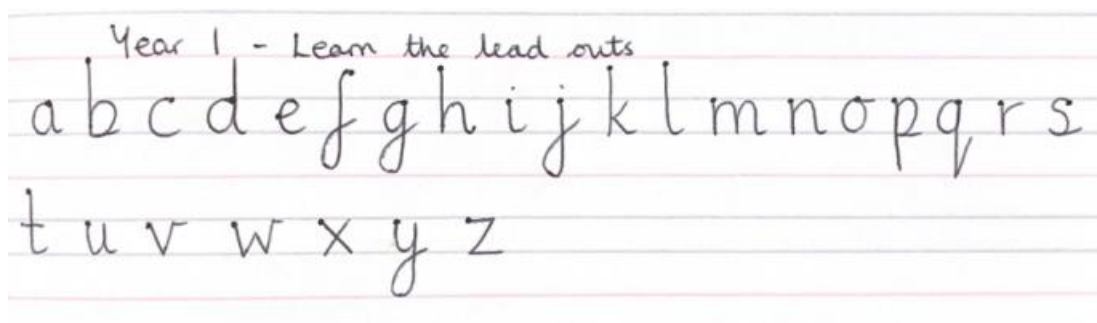 Year 1 - Learn the lead outs
a b c d e f g h i j k l m n o p q r s
t u v w x y z